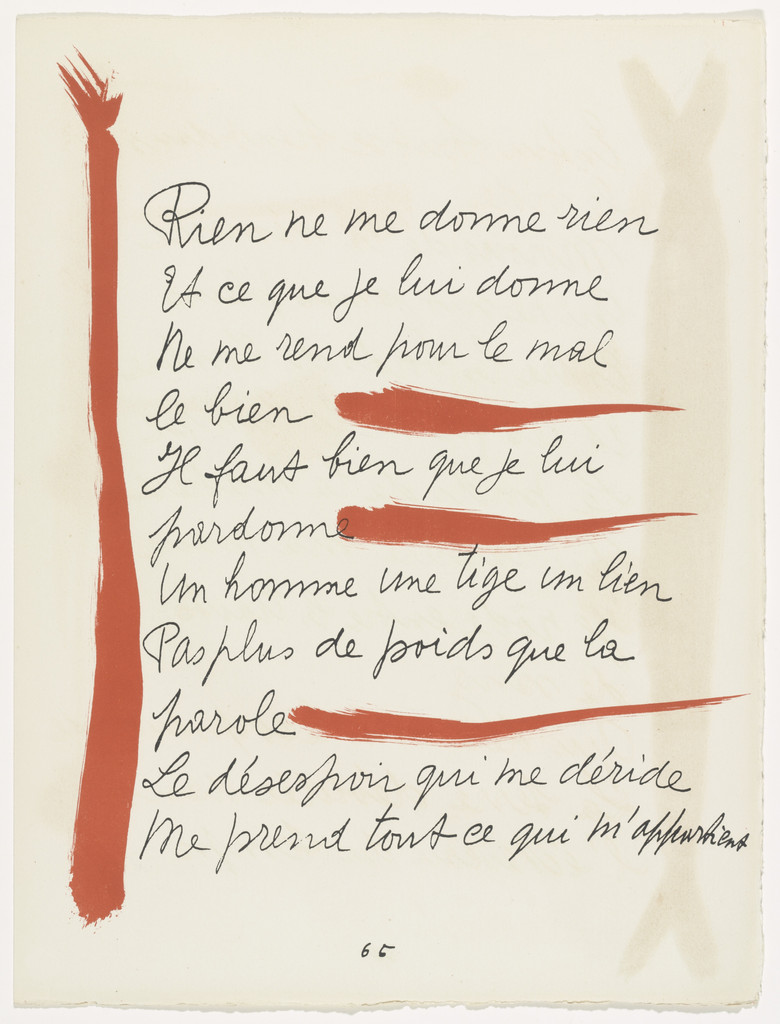 Rien ne me donne rien
Et ce que je lui donne
Ne me rend pour le mal
le bien
Il faut bien que je lui
pardonne
Un homme une tige un lien
Pas plus de poids que la
parole
Le désespoir qui me déride
Me prend tout ce qui m'appartient
65